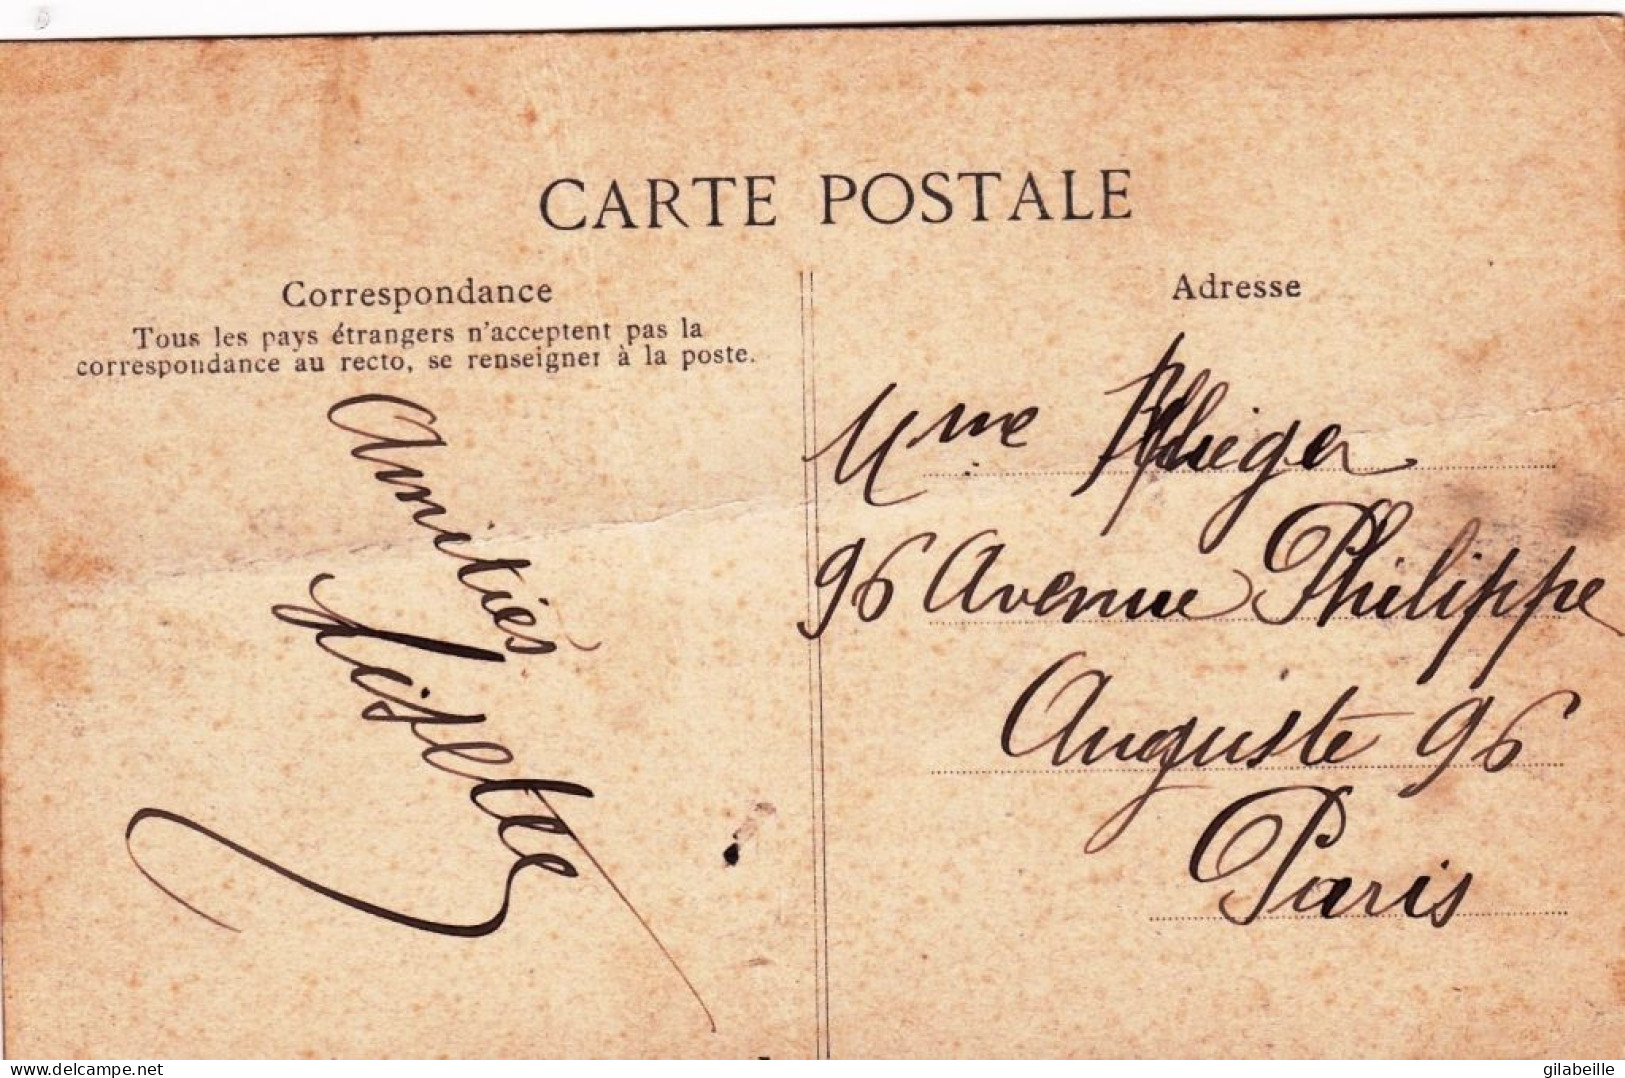 CARTE POSTALE
Correspondance
Tous les pays étrangers n'acceptent pas la
correspondance au recto, se renseigner à la poste.
Amitiés
Adresse
Mme
96 Avenue Philippe
Auguste 96
Paris
delcampe.net
gilabeille